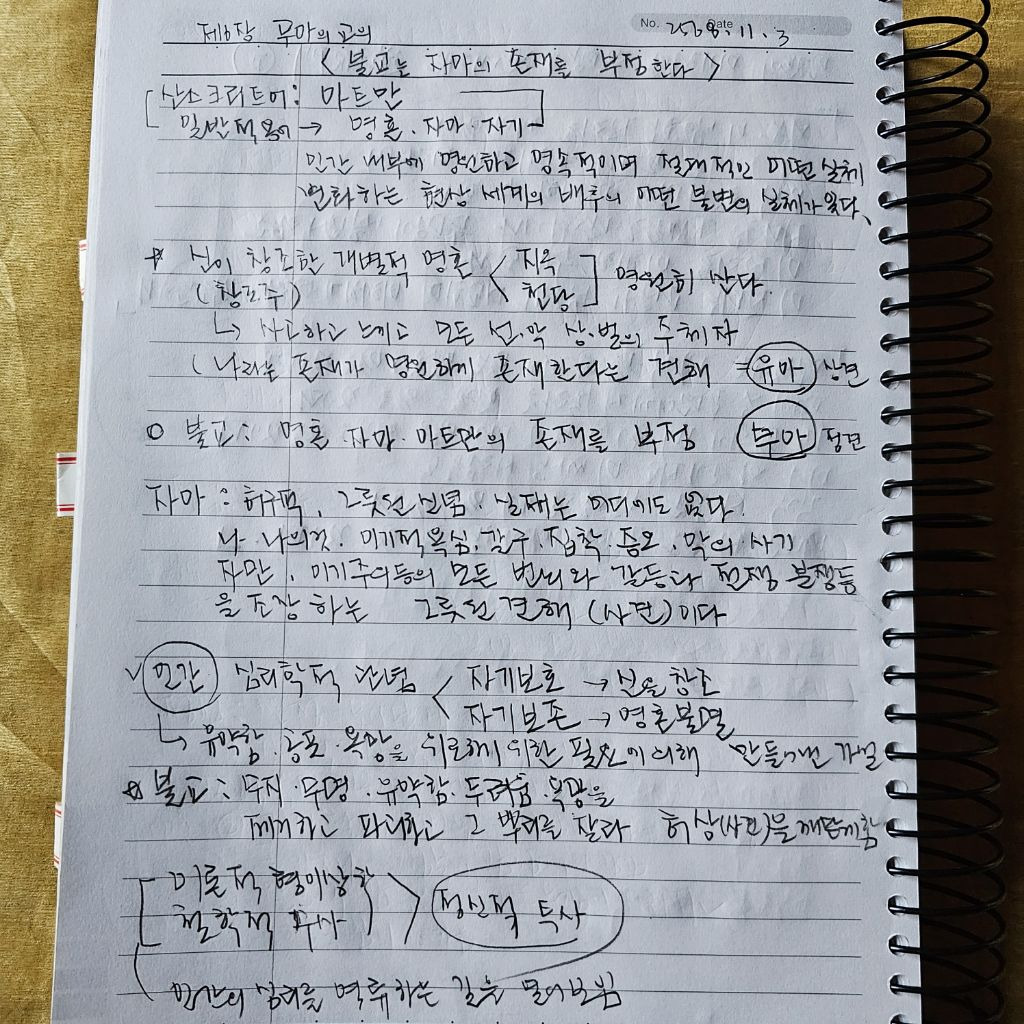 제6장 무아의 교의
No. Date 2568. 11. 3
< 불교는 자아의 존재를 부정한다 >
산스크리트어: 아트만
일반적 용어 → 영혼·자아·자기
인간 내부에 영원하고 영속적이며 절대적인 어떤 실체
변화하는 현상 세계의 배후의 어떤 불변의 실체가 있다.
☆ 신이 창조한 개별적 영혼 < 지옥 천당 ] 영원히 산다.
(창조주)
↳ 사고하고 느끼고 모든 선·악 상·벌의 주체자
(나라는 존재가 영원하게 존재한다는 견해 = 유아 상견
○ 불교: 영혼·자아·아트만의 존재를 부정 무아 정견
자아: 허구적, 그릇된 신념·실재는 어디에도 없다.
나·나의것·이기적욕심·갈구·집착·증오·악의·사기
자만, 이기주의등의 모든 번뇌와 갈등과 전쟁 분쟁등
을 조장하는 그릇된 견해 (사견)이다
✓ 인간 심리학적 관념 < 자기보호 → 신을 창조
자기보존 → 영혼불멸
↳ 유약함·공포·욕망을 위로하기 위한 필요에 의해 만들어낸 가설
☆ 불교: 무지·무명·유약함·두려움·욕망을
제거하고 파괴하고 그 뿌리를 잘라 허상(사견)을 깨닫게함
이론적 형이상학
철학적 수사 > 정신적 투사
인간의 심리를 역류하는 길을 열어보임